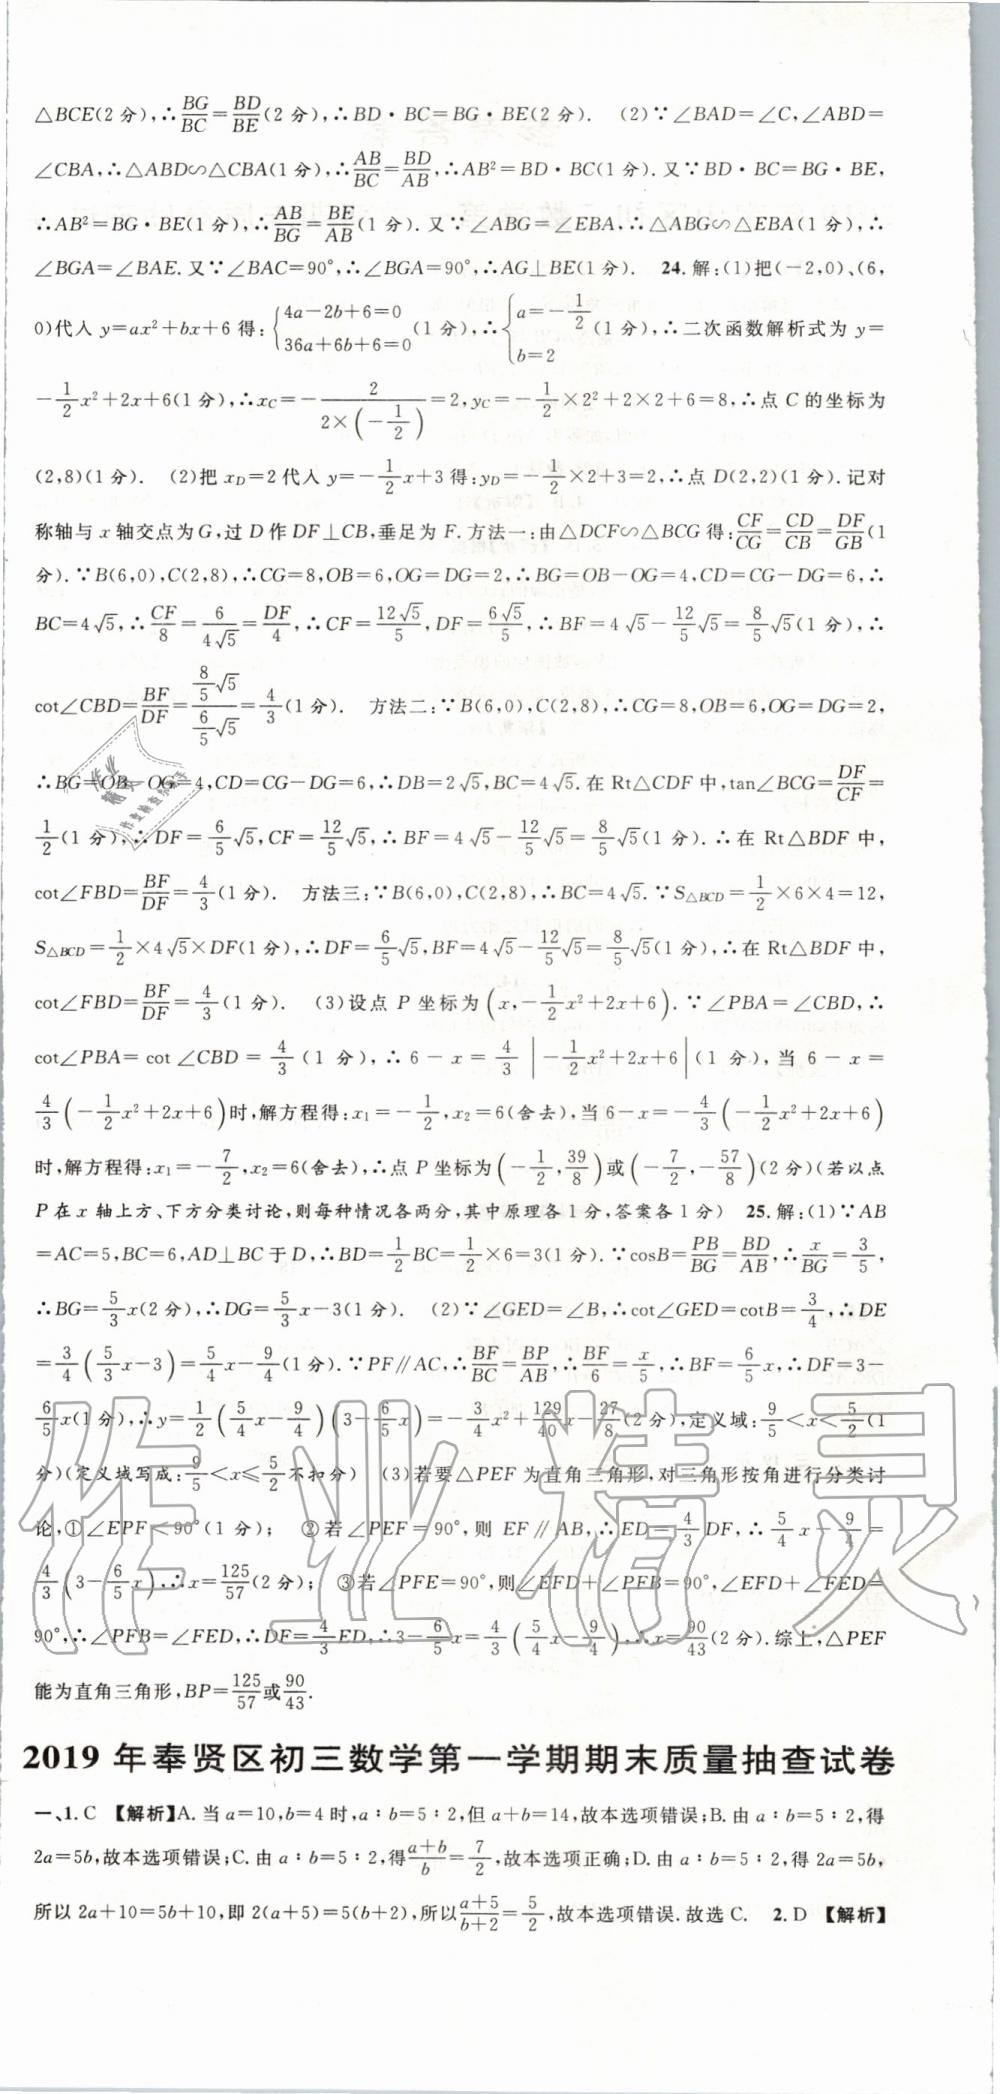 △BCE(2分),∴BG/BC=BD/BE(2分),∴BD·BC=BG·BE(2分). (2)∵∠BAD=∠C,∠ABD=
∠CBA,∴△ABD∽△CBA(1分),∴AB/BC=BD/AB,∴AB²=BD·BC(1分).又∵BD·BC=BG·BE,
∴AB²=BG·BE(1分),∴AB/BG=BE/AB(1分).又∵∠ABG=∠EBA,∴△ABG∽△EBA(1分),∴
∠BGA=∠BAE.又∵∠BAC=90°,∴∠BGA=90°,∴AG⊥BE(1分). 24.解:(1)把(-2,0)、(6,
0)代入 y=ax²+bx+6 得:{4a-2b+6=0 36a+6b+6=0(1分),∴{a=-1/2 b=2(1分),∴二次函数解析式为 y=
-1/2x²+2x+6(1分),∴x_C=-2/(2×(-1/2))=2,y_C=-1/2×2²+2×2+6=8,∴点 C 的坐标为
(2,8)(1分). (2)把 x_D=2 代入 y=-1/2x+3 得:y_D=-1/2×2+3=2,∴点 D(2,2)(1分).记对
称轴与 x 轴交点为 G,过 D 作 DF⊥CB,垂足为 F.方法一:由△DCF∽△BCG 得:CF/CG=CD/CB=DF/GB(1
分).∵B(6,0),C(2,8),∴CG=8,OB=6,OG=DG=2,∴BG=OB-OG=4,CD=CG-DG=6,∴
BC=4√5,∴CF/8=6/4√5=DF/4,∴CF=12√5/5,DF=6√5/5,∴BF=4√5-12/5√5=8/5√5(1分),∴
cot∠CBD=BF/DF=(8/5√5)/(6/5√5)=4/3(1分). 方法二:∵B(6,0),C(2,8),∴CG=8,OB=6,OG=DG=2,
∴BG=OB-OG=4,CD=CG-DG=6,∴DB=2√5,BC=4√5.在 Rt△CDF 中,tan∠BCG=DF/CF=
1/2(1分),∴DF=6/5√5,CF=12/5√5,∴BF=4√5-12/5√5=8/5√5(1分).∴在 Rt△BDF 中,
cot∠FBD=BF/DF=4/3(1分). 方法三:∵B(6,0),C(2,8),∴BC=4√5.∵S△BCD=1/2×6×4=12,
S△BCD=1/2×4√5×DF(1分),∴DF=6/5√5,BF=4√5-12/5√5=8/5√5(1分),∴在 Rt△BDF 中,
cot∠FBD=BF/DF=4/3(1分). (3)设点 P 坐标为(x,-1/2x²+2x+6).∵∠PBA=∠CBD,∴
cot∠PBA=cot∠CBD=4/3(1分),∴6-x=4/3|-1/2x²+2x+6|(1分),当 6-x=
4/3(-1/2x²+2x+6)时,解方程得:x₁=-1/2,x₂=6(舍去),当 6-x=-4/3(-1/2x²+2x+6)
时,解方程得:x₁=-7/2,x₂=6(舍去),∴点 P 坐标为(-1/2,39/8)或(-7/2,-57/8)(2分)(若以点
P 在 x 轴上方、下方分类讨论,则每种情况各两分,其中原理各1分,答案各1分) 25.解:(1)∵AB
=AC=5,BC=6,AD⊥BC 于 D,∴BD=1/2BC=1/2×6=3(1分).∵cosB=PB/BG=BD/AB,∴x/BG=3/5,
∴BG=5/3x(2分),∴DG=5/3x-3(1分). (2)∵∠GED=∠B,∴cot∠GED=cotB=3/4,∴DE
=3/4(5/3x-3)=5/4x-9/4(1分).∵PF∥AC,∴BF/BC=BP/AB,∴BF/6=x/5,∴BF=6/5x,∴DF=3-
6/5x(1分),∴y=1/2(5/4x-9/4)(3-6/5x)=-3/4x²+129/40x-27/8(2分),定义域:9/5<x<5/2(1
分)(定义域写成:9/5<x≤5/2不扣分) (3)若要△PEF 为直角三角形,对三角形按角进行分类讨
论,①∠EPF<90°(1分); ②若∠PEF=90°,则 EF∥AB,∴ED=4/3DF,∴5/4x-9/4=
4/3(3-6/5x),∴x=125/57(2分); ③若∠PFE=90°,则∠EFD+∠PFB=90°,∠EFD+∠FED=
90°,∴∠PFB=∠FED,∴DF=4/3ED,∴3-6/5x=4/3(5/4x-9/4),∴x=90/43(2分).综上,△PEF
能为直角三角形,BP=125/57或90/43.
2019年奉贤区初三数学第一学期期末质量抽查试卷
一、1.C 【解析】A.当 a=10,b=4 时,a∶b=5∶2,但 a+b=14,故本选项错误;B.由 a∶b=5∶2,得
2a=5b,故本选项错误;C.由 a∶b=5∶2,得(a+b)/b=7/2,故本选项正确;D.由 a∶b=5∶2,得 2a=5b,
所以 2a+10=5b+10,即 2(a+5)=5(b+2),所以(a+5)/(b+2)=5/2,故本选项错误.故选 C. 2.D 【解析】
作业精灵